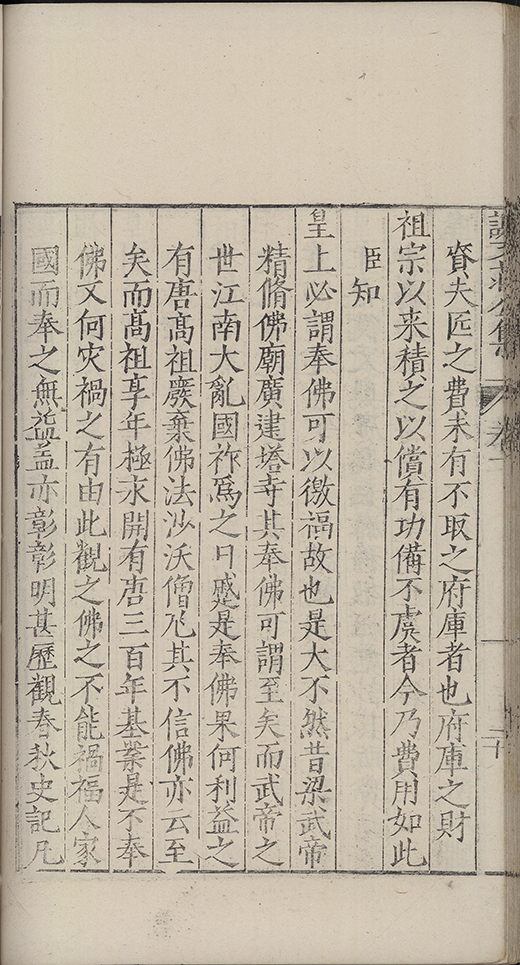 資夫匠之費未有不取之府庫者也府庫之財
祖宗以来積之以償有功備不虞者今乃費用如此
臣知
皇上必謂奉佛可以徼福故也是大不然昔梁武帝
精脩佛廟廣建塔寺其奉佛可謂至矣而武帝之
世江南大亂國祚爲之日蹙是奉佛果何利益之
有唐髙祖廢棄佛法沙汰僧尼其不信佛亦云至
矣而髙祖享年極永開有唐三百年基業是不奉
佛又何灾禍之有由此觀之佛之不能禍福人家
國而奉之無益盖亦彰彰明甚歷觀春秋史記凡